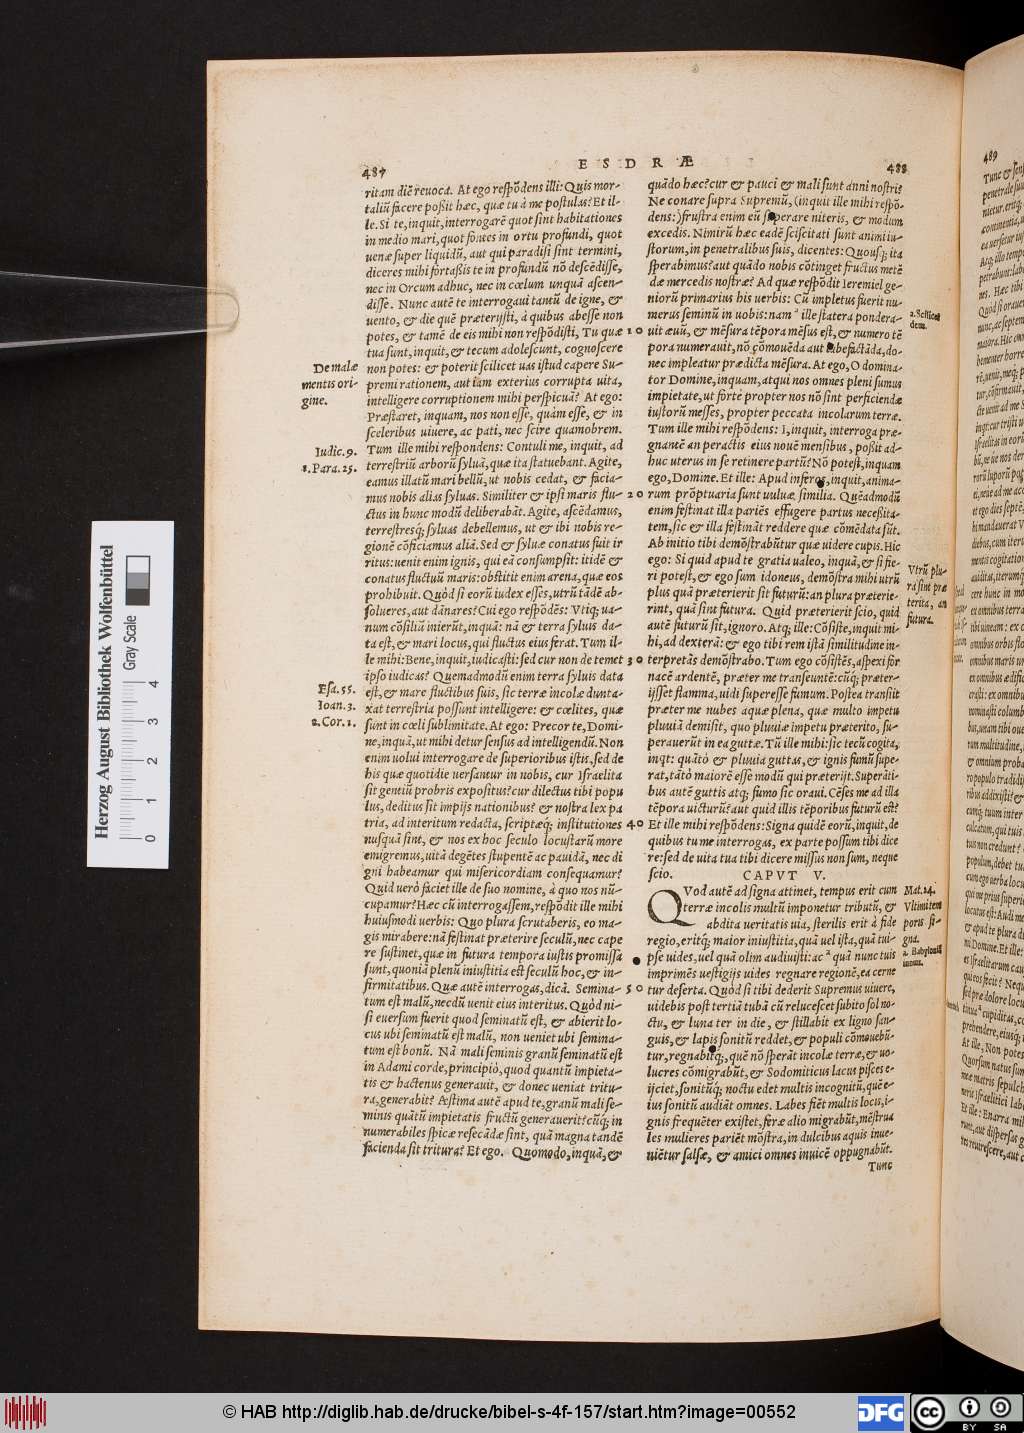 ESDRÆ
487
ritam diē revoca. At ego respōdens illi: Quis mor-
taliū facere poßit hæc, quæ tu à me postulas? Et il-
le. Si te, inquit, interrogarē quot sint habitationes
in medio mari, quot fontes in ortu profundi, quot
uenæ super liquidū, aut qui paradisi sint termini,
diceres mihi fortaßis te in profundū nō descēdisse,
nec in Orcum adhuc, nec in cœlum unquā ascen-
disse. Nunc autē te interrogaui tantū de igne, &
uento, & die quē præterijsti, à quibus abesse non
potes, & tamē de eis mihi non respōdisti, Tu quæ
tua sunt, inquit, & tecum adolescunt, cognoscere
non potes: & poterit scilicet uas istud capere Su-
premi rationem, aut iam exterius corrupta uita,
intelligere corruptionem mihi perspicuā? At ego:
Præstaret, inquam, nos non esse, quàm esse, & in
sceleribus uiuere, ac pati, nec scire quamobrem.
Tum ille mihi respondens: Contuli me, inquit, ad
terrestriū arborū syluā, quæ ita statuebant. Agite,
eamus illatū mari bellū, ut nobis cedat, & facia-
mus nobis alias syluas. Similiter & ipsi maris flu-
ctus in hunc modū deliberabāt. Agite, ascēdamus,
terrestresq; syluas debellemus, ut & ibi nobis re-
gionē cōficiamus aliā. Sed & syluæ conatus fuit ir
ritus: uenit enim ignis, qui eā consumpsit: itidē &
conatus fluctuū maris: obstitit enim arena, quæ eos
prohibuit. Quòd si eorū iudex esses, utrū tādē ab-
solueres, aut dānares? Cui ego respōdēs: Vtiq; ua-
num cōsiliū inierūt, inquā: nā & terra syluis da-
ta est, & mari locus, qui fluctus eius ferat. Tum il-
le mihi: Bene, inquit, iudicasti: sed cur non de temet
ipso iudicas? Quemadmodū enim terra syluis data
est, & mare fluctibus suis, sic terræ incolæ dunta-
xat terrestria possunt intelligere: & cœlites, quæ
sunt in cœli sublimitate. At ego: Precor te, Domi-
ne, inquā, ut mihi detur sensus ad intelligendū. Non
enim uolui interrogare de superioribus istis, sed de
his quæ quotidie uersantur in nobis, cur Israelita
sit gentiū probris expositus? cur dilectus tibi popu
lus, deditus sit impijs nationibus? & nostra lex pa
tria, ad interitum redacta, scriptæq; institutiones
nusquā sint, & nos ex hoc seculo locustarū more
emigremus, uitā degētes stupentē ac pauidā, nec di
gni habeamur qui misericordiam consequamur?
Quid uerò faciet ille de suo nomine, à quo nos nū-
cupamur? Hæc cū interrogassem, respōdit ille mihi
huiusmodi uerbis: Quo plura scrutaberis, eo ma-
gis mirabere: nā festinat præterire seculū, nec cape
re sustinet, quæ in futura tempora iustis promissa
sunt, quoniā plenū iniustitia est seculū hoc, & in-
firmitatibus. Quæ autē interrogas, dicā. Semina-
tum est malū, necdū uenit eius interitus. Quòd ni-
si euersum fuerit quod seminatū est, & abierit lo-
cus ubi seminatū est malū, non ueniet ubi semina-
tum est bonū. Nā mali seminis granū seminatū est
in Adami corde, principiò, quod quantū impieta-
tis & hactenus generauit, & donec ueniat tritu-
ra, generabit? Æstima autē apud te, granū mali se-
minis quātū impietatis fructū generauerit? cūq; in
numerabiles spicæ resecādæ sint, quā magna tandē
facienda sit tritura? Et ego. Quomodo, inquā, &
De malæ
mentis ori-
gine.
Iudic. 9.
1. Para. 25.
Esa. 55.
Ioan. 3.
2. Cor. 1.
10
20
30
40
50
488
quādo hæc? cur & pauci & mali sunt anni nostri?
Ne conare supra Supremū, (inquit ille mihi respō-
dens:) frustra enim eū superare niteris, & modum
excedis. Nimirū hæc eadē sciscitati sunt animi iu-
storum, in penetralibus suis, dicentes: Quousq; ita
sperabimus? aut quādo nobis cōtinget fructus metē
dæ mercedis nostræ? Ad quæ respōdit Ieremiel ge-
niorū primarius his uerbis: Cū impletus fuerit nu-
merus seminū in uobis: nam ᵃ ille statera pondera-
uit æuū, & mēsura tēpora mēsus est, & numero tē
pora numerauit, nō cōmouēda aut labefactāda, do-
nec impleatur prædicta mēsura. At ego, O domina-
tor Domine, inquam, atqui nos omnes pleni sumus
impietate, ut fortè propter nos nō sint perficiendæ
iustorū messes, propter peccata incolarum terræ.
Tum ille mihi respōdens: I, inquit, interroga præ-
gnantē an peractis eius nouē mensibus, poßit ad-
huc uterus in se retinere partū? Nō potest, inquam
ego, Domine. Et ille: Apud inferos, inquit, anima-
rum prōptuaria sunt uuluæ similia. Quēadmodū
enim festinat illa pariēs effugere partus necessita-
tem, sic & illa festināt reddere quæ cōmēdata sūt.
Ab initio tibi demōstrabūtur quæ uidere cupis. Hic
ego: Si quid apud te gratia ualeo, inquā, & si fie-
ri potest, & ego sum idoneus, demōstra mihi utrū
plus quā præterierit sit futurū: an plura præterie-
rint, quā sint futura. Quid præterierit scio, quid
autē futurū sit, ignoro. Atq; ille: Cōsiste, inquit mi-
hi, ad dexterā: & ego tibi rem istā similitudine in-
terpretās demōstrabo. Tum ego cōsistēs, aspexi for
nacē ardentē, præter me transeuntē: cūq; præter-
ijsset flamma, uidi superesse fumum. Postea transiit
præter me nubes aquæ plena, quæ multo impetu
pluuiā demisit, quo pluuiæ impetu præterito, su-
perauerūt in ea guttæ. Tū ille mihi: sic tecū cogita,
inqt: quātò & pluuia guttas, & ignis fumū supe-
rat, tātò maiorē esse modū qui præterijt. Superāti-
bus autē guttis atq; fumo sic oraui. Cēses me ad illa
tēpora uicturū? aut quid illis tēporibus futurū est?
Et ille mihi respōdens: Signa quidē eorū, inquit, de
quibus tu me interrogas, ex parte possum tibi dice
re: sed de uita tua tibi dicere missus non sum, neque
scio. CAPVT V.
QVod autē ad signa attinet, tempus erit cum
terræ incolis multū imponetur tributū, &
abdita ueritatis uia, sterilis erit à fide
regio, eritq; maior iniustitia, quā uel ista, quā tui-
pse uides, uel quā olim audiuisti: ac ᵃ quā nunc tuis
imprimēs uestigijs uides regnare regionē, ea cerne
tur deserta. Quòd si tibi dederit Supremus uiuere,
uidebis post tertiā tubā cū relucescet subito sol no-
ctu, & luna ter in die, & stillabit ex ligno san-
guis, & lapis sonitū reddet, & populi cōmouebū-
tur, regnabitq;, quē nō sperāt incolæ terræ, & uo-
lucres cōmigrabūt, & Sodomiticus lacus pisces e-
ijciet, sonitūq; noctu edet multis incognitū, quē e-
ius sonitū audiāt omnes. Labes fiēt multis locis, i-
gnis frequēter existet, feræ alio migrabūt, mēstrua
les mulieres pariēt mōstra, in dulcibus aquis inue-
niētur salsæ, & amici omnes inuicē oppugnabūt.
Tunc
a. Scilicet
dem.
Vtrū plu-
ra sint præ
terita, an
futura.
Mat. 24.
Vltimi tem
poris si-
gna.
a. Babylonii
489
Herzog August Bibliothek Wolfenbüttel
Gray Scale
0 1 2 3 4
© HAB http://diglib.hab.de/drucke/bibel-s-4f-157/start.htm?image=00552
DFG
cc
BY SA